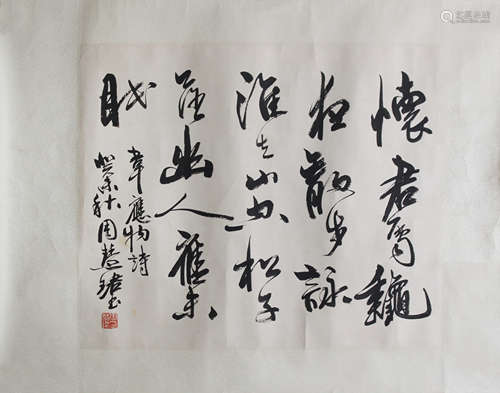 懷君屬龝
夜散步詠
涼天山空松子
落幽人應未
眠
韋應物詩
癸未秋周慧珺書